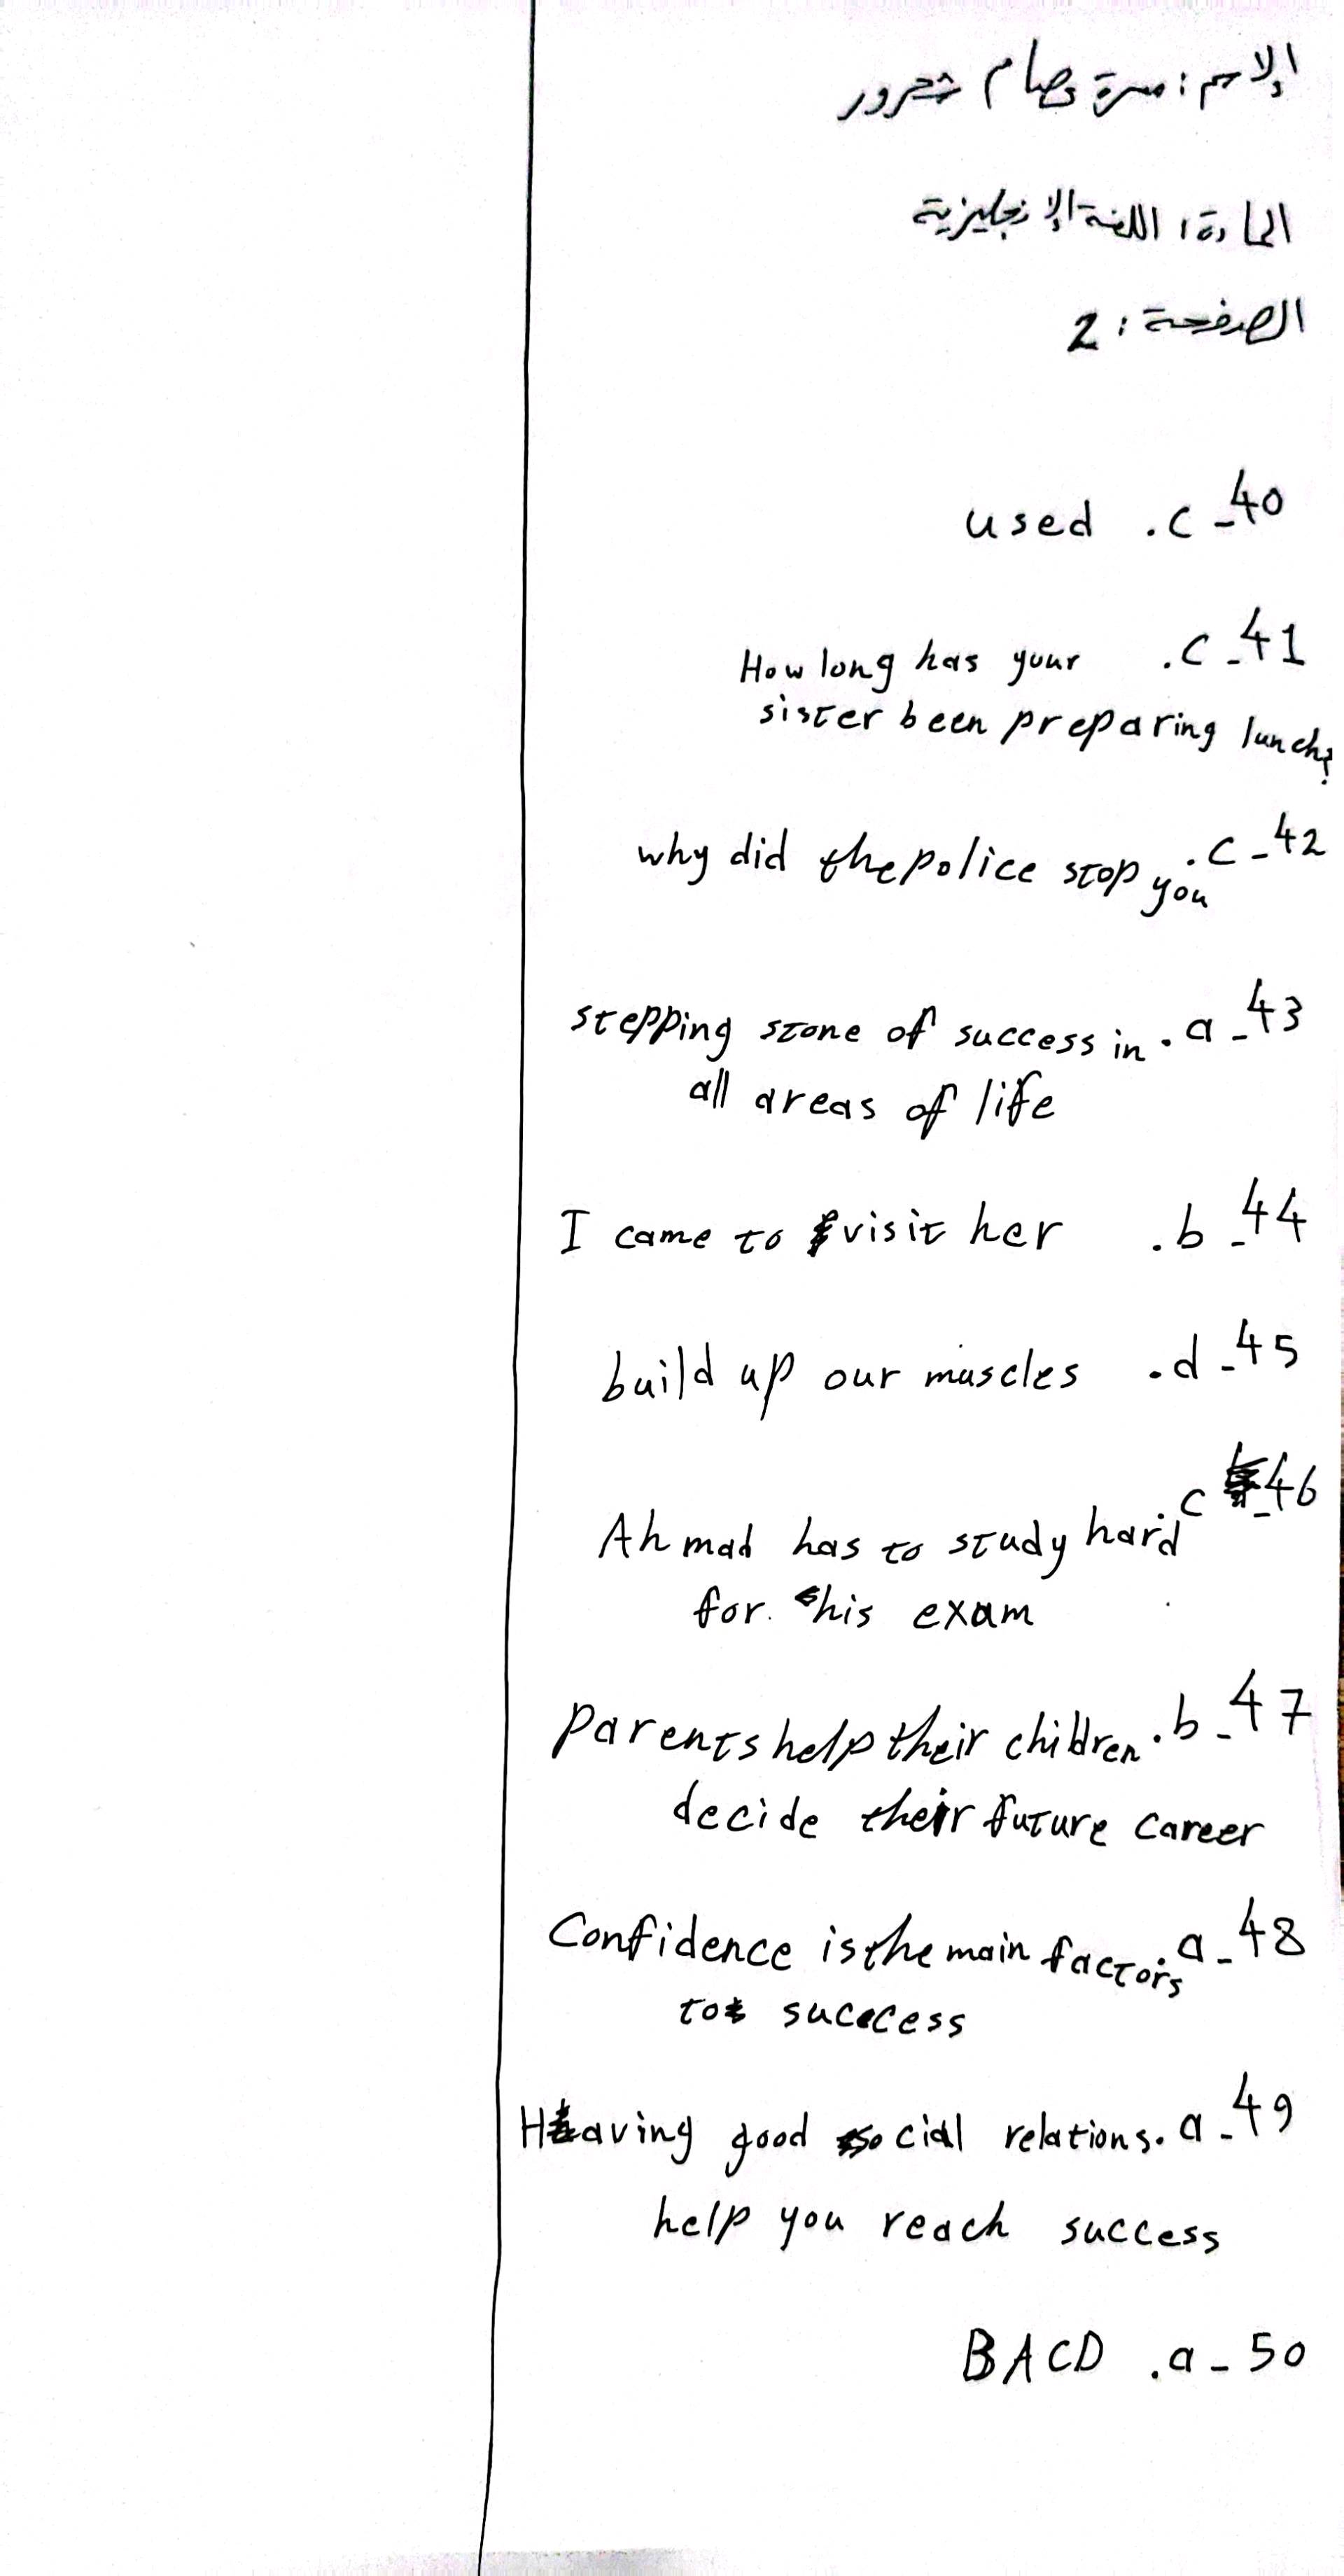 الاسم: مسرة وسام شحرور
المادة: اللغة الإنجليزية
الصفحة: 2
40- c. used
41- c. How long has your
sister been preparing lunch?
42- c. why did the police stop you
43- a. stepping stone of success in
all areas of life
44- b. I came to visit her
45- d. build up our muscles
46- c. Ahmad has to study hard
for his exam
47- b. parents help their children
decide their future career
48- a. Confidence is the main factors
to success
49- a. Having good social relations
help you reach success
50- a. BACD